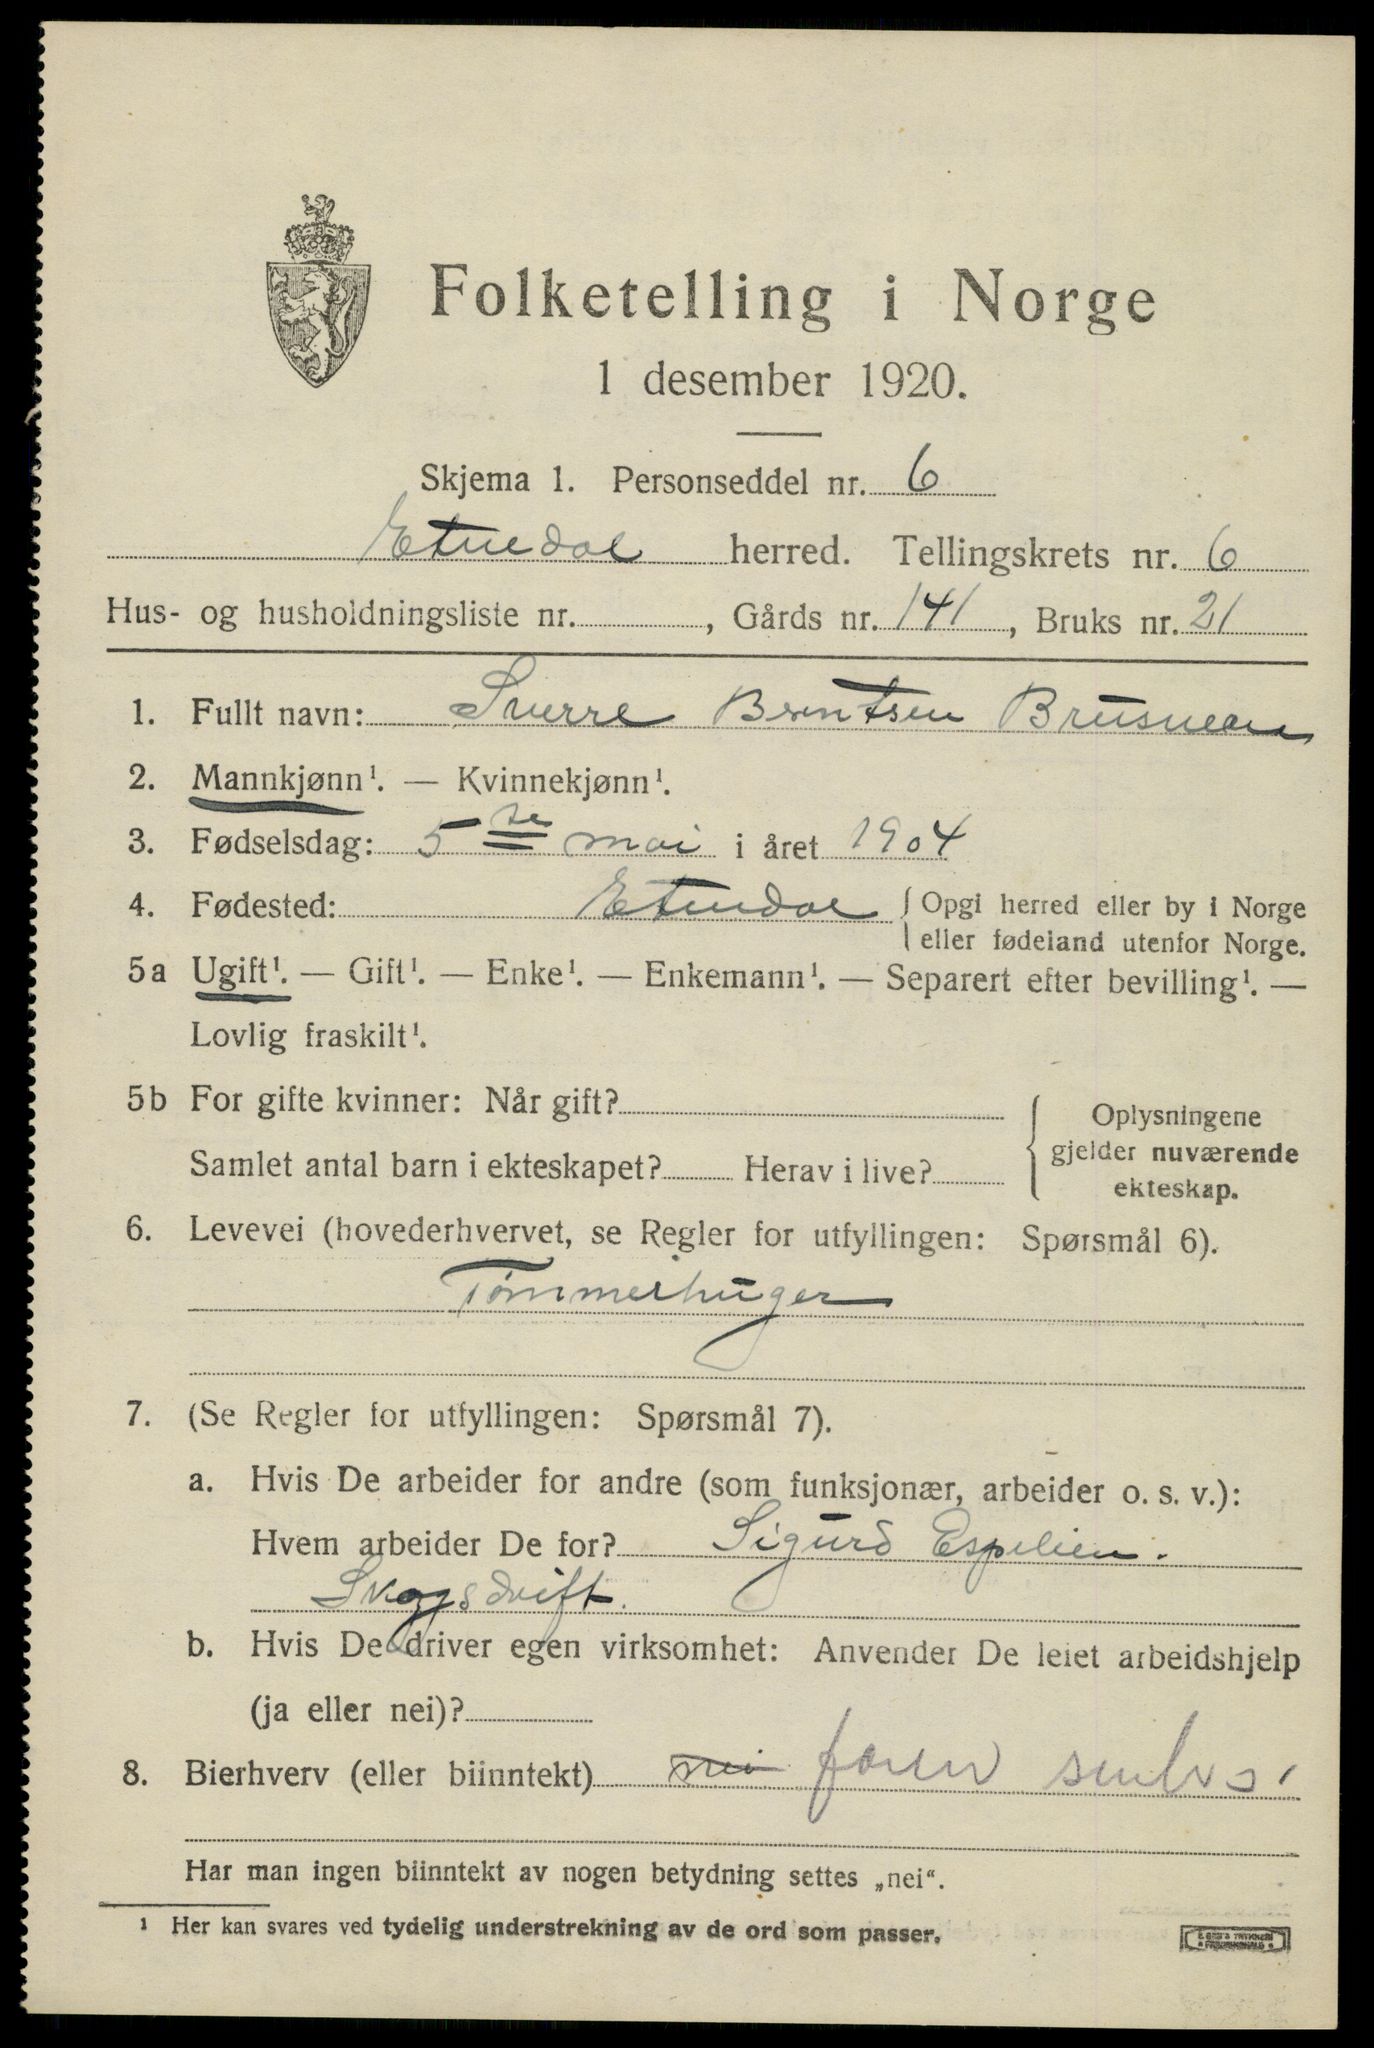 Folketelling i Norge
1 desember 1920.
Skjema 1. Personseddel nr. 6
Etnedal herred. Tellingskrets nr. 6
Hus- og husholdningsliste nr. , Gårds nr. 141, Bruks nr. 21
1. Fullt navn: Sverre Berntsen
2. Mannkjønn¹. — Kvinnekjønn¹.
3. Fødselsdag: 5te mai i året 1904
4. Fødested: Etnedal { Opgi herred eller by i Norge
eller fødeland utenfor Norge.
5a Ugift¹. — Gift¹. — Enke¹. — Enkemann¹. — Separert efter bevilling¹. —
Lovlig fraskilt¹.
5b For gifte kvinner: Når gift? { Oplysningene
gjelder nuværende
Samlet antal barn i ekteskapet? Herav i live? ekteskap.
6. Levevei (hovederhvervet, se Regler for utfyllingen: Spørsmål 6).
Tømmerhuger
7. (Se Regler for utfyllingen: Spørsmål 7).
a. Hvis De arbeider for andre (som funksjonær, arbeider o. s. v.):
Hvem arbeider De for? Sigurd Espelien.
Skogsdrift.
b. Hvis De driver egen virksomhet: Anvender De leiet arbeidshjelp
(ja eller nei)?
8. Bierhverv (eller biinntekt) nei
Har man ingen biinntekt av nogen betydning settes „nei“.
¹ Her kan svares ved tydelig understrekning av de ord som passer.